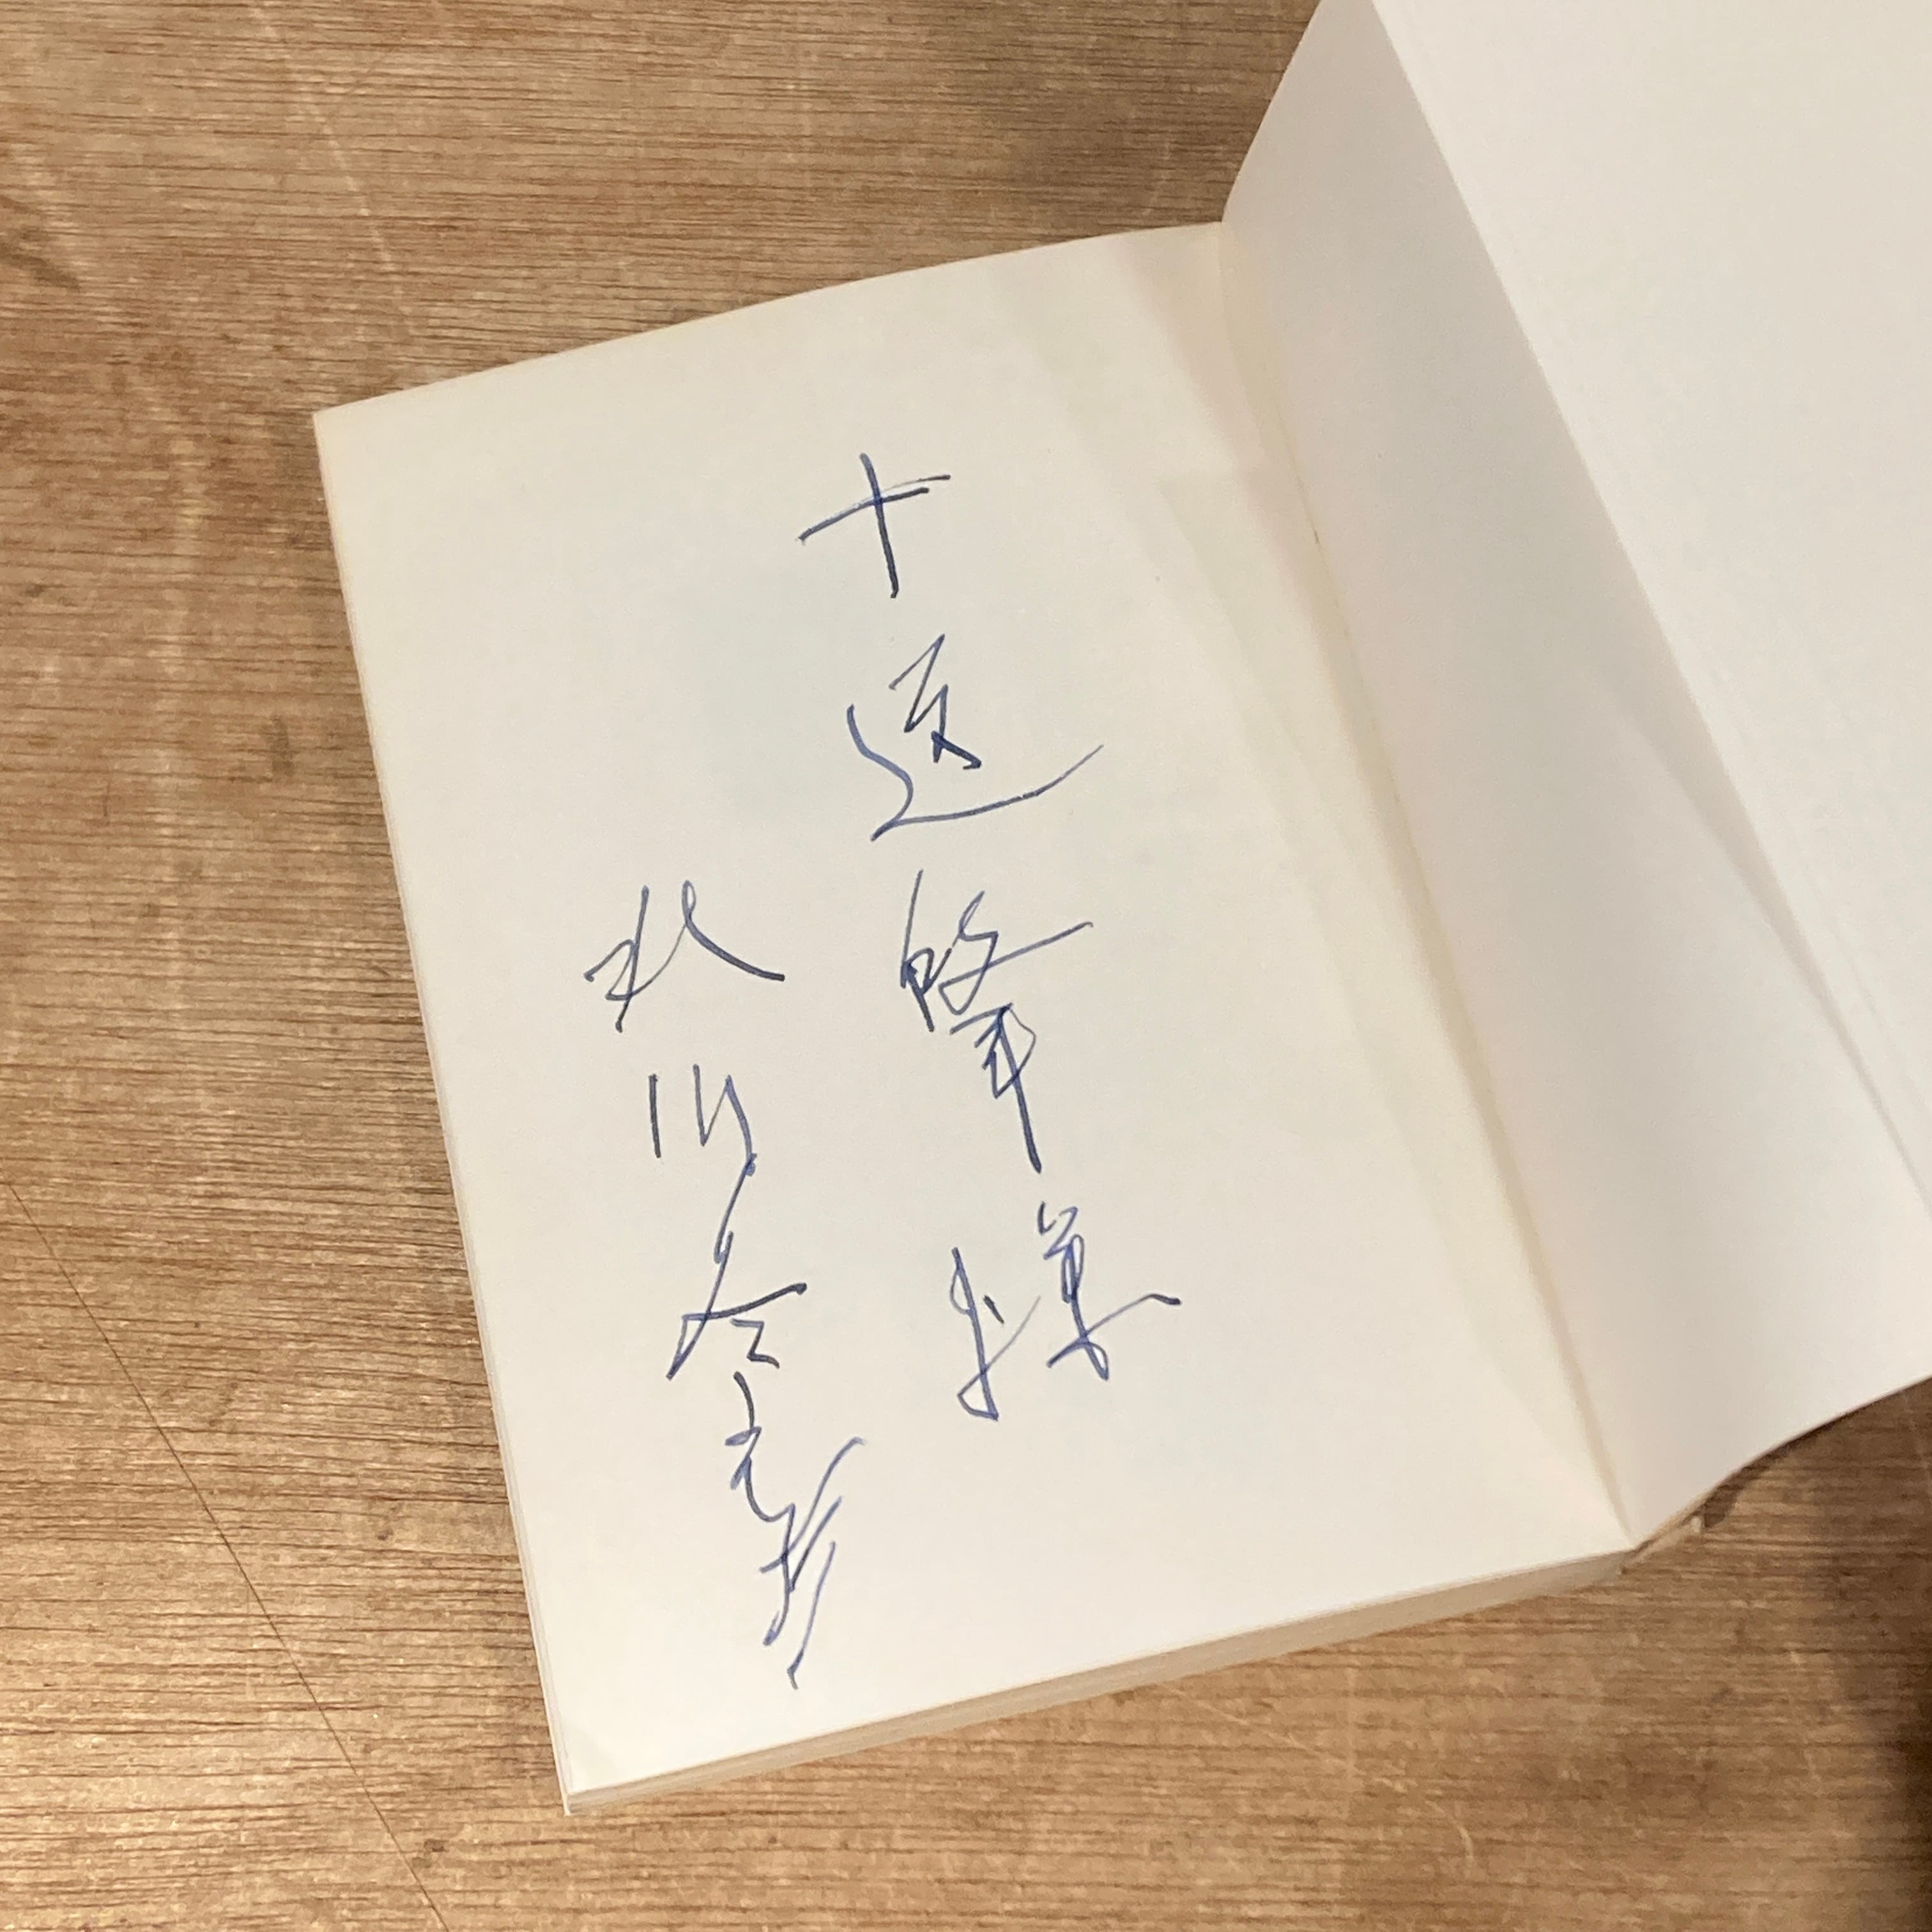 十返肇様
北川冬彦